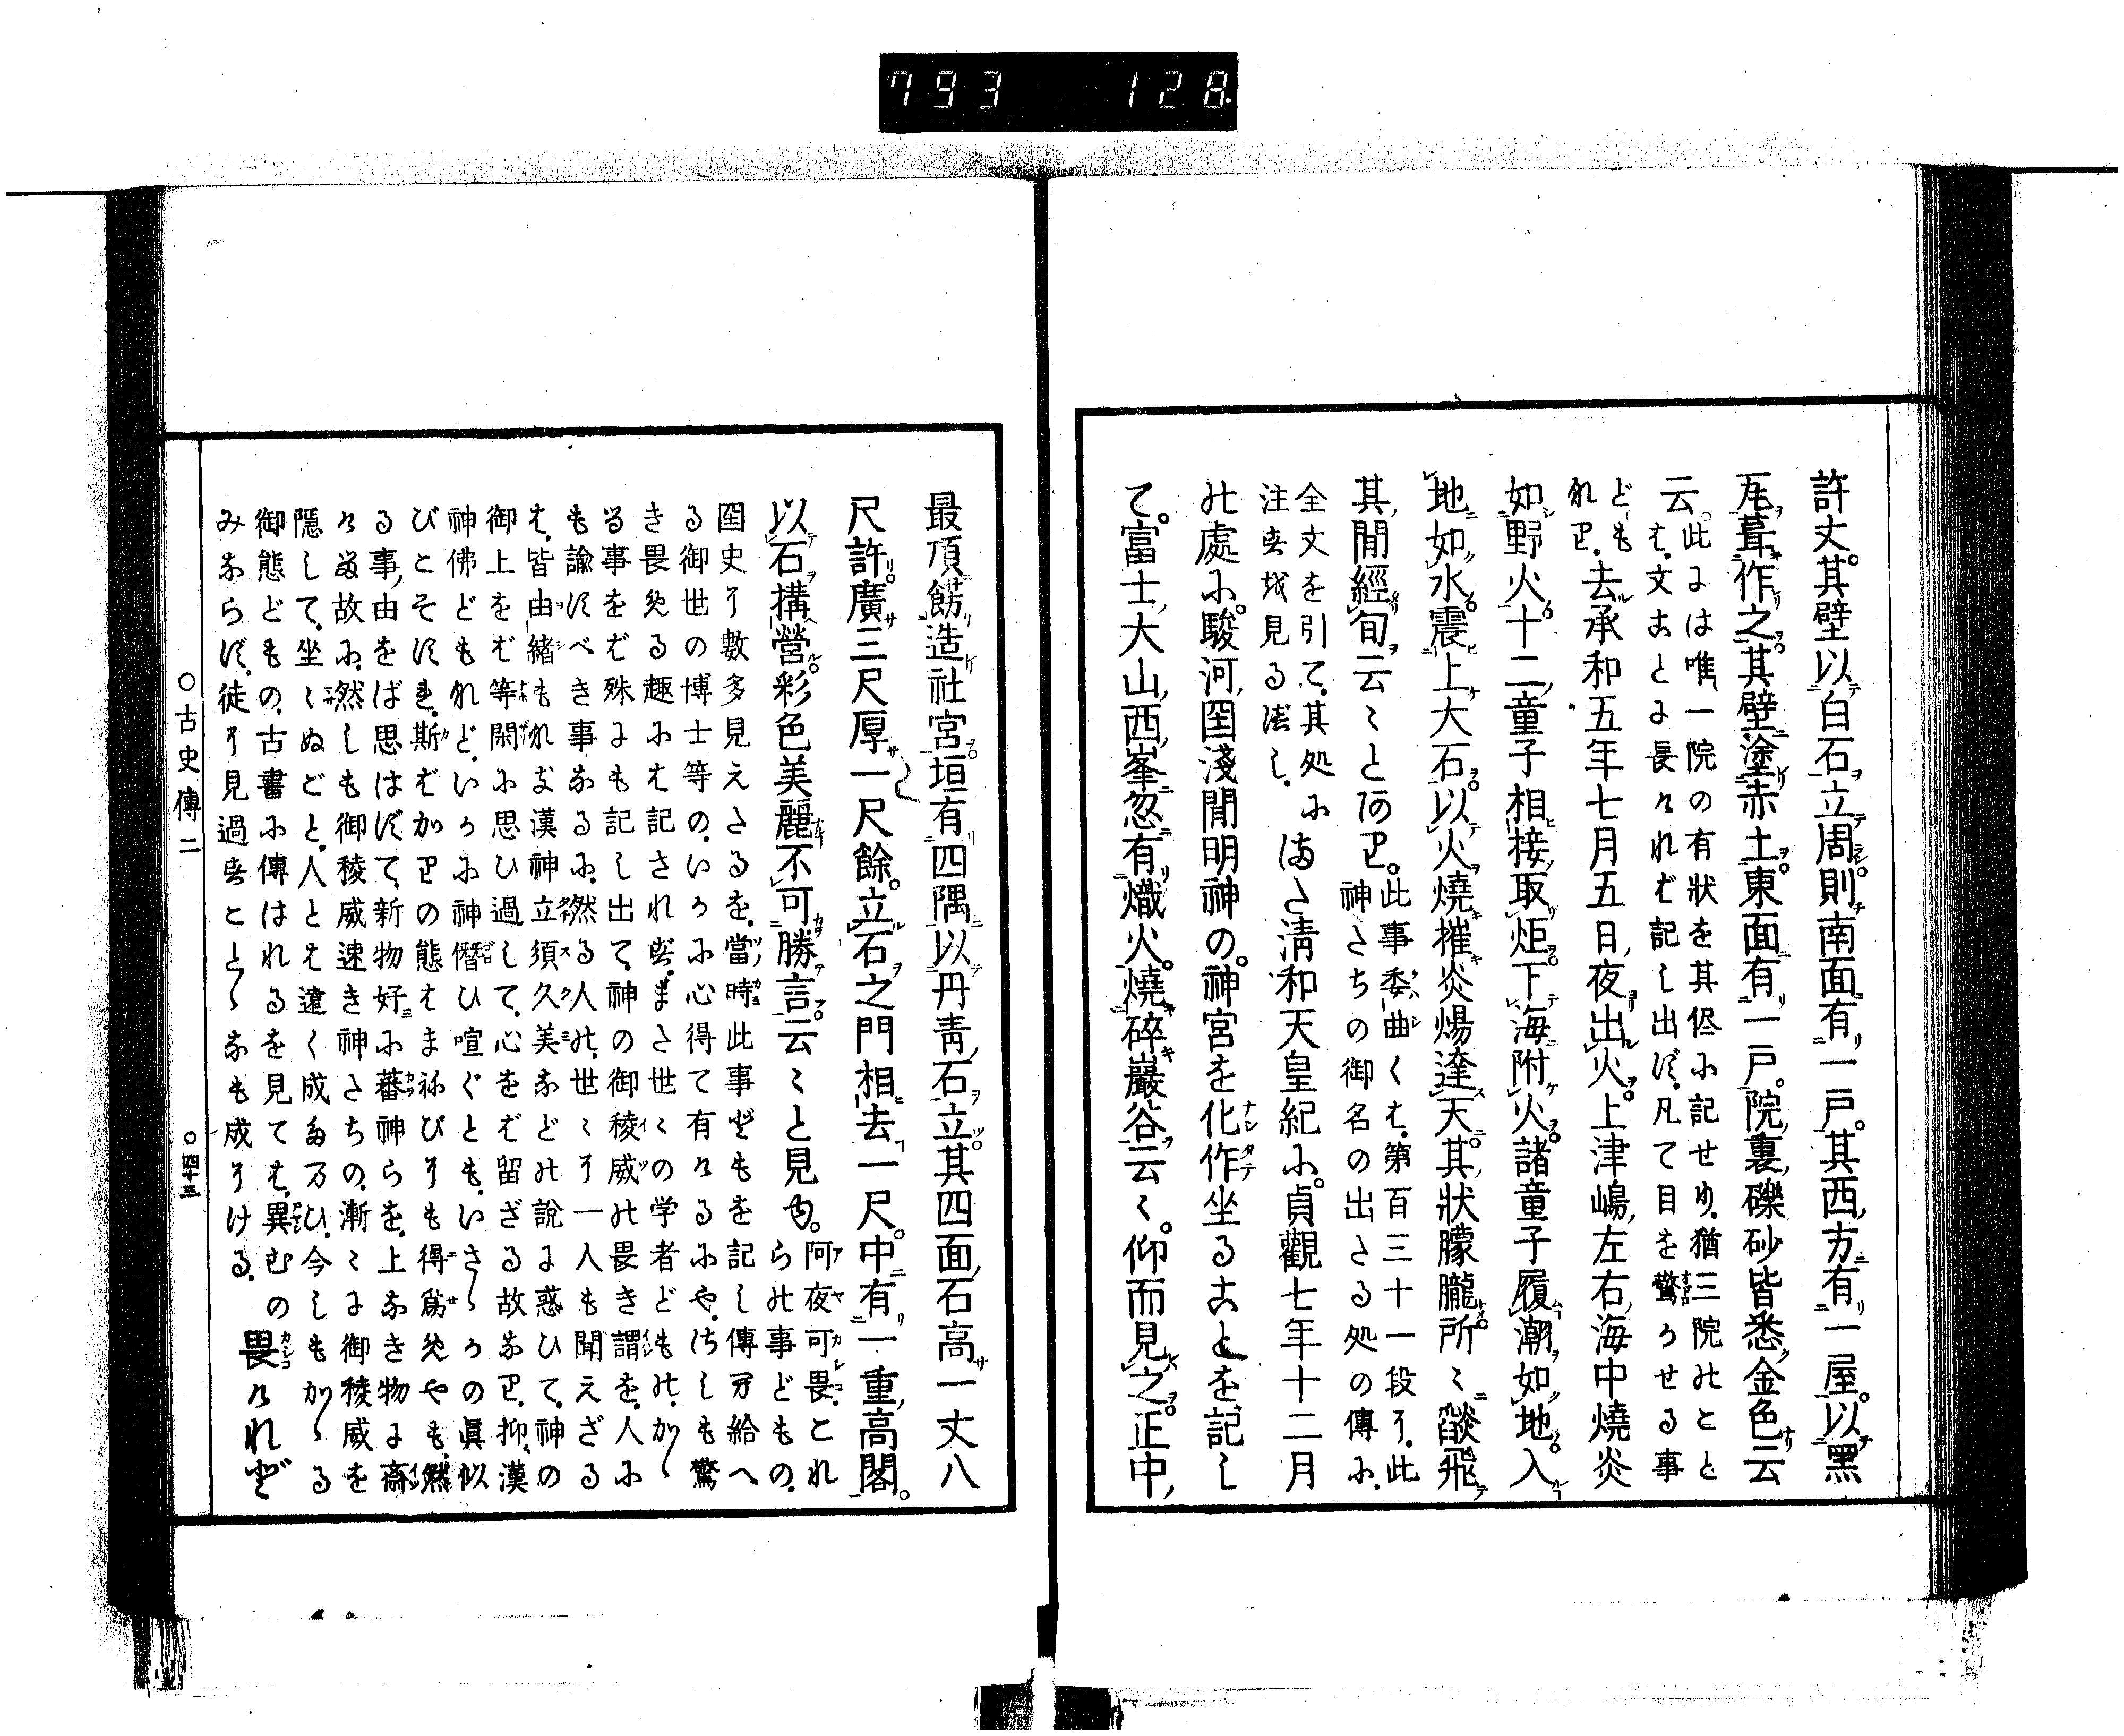 793 128
許丈。其壁以白石立周。則南面有一戸。其西方有一屋。以黑
瓦葺作之。其壁塗赤土。東面有一戸。院裏礫砂皆悉金色云
云。此よは唯一院の有狀を其侭に記せり。猶三院のこと
は、文あとよ長ければ記し出ず。凡て目を驚かせる事
ども
なり。去承和五年七月五日夜出火。上津嶋左右海中燒炎
如野火。十二童子相接取炬。下海附火。諸童子履潮如地。入
地如水。震上大石。以火燒摧。炎煬達天。其狀朦朧。所〻燄飛
其閒經旬云〻とあり。此事委曲くは、第百三十一段に、此
神たちの御名の出たる処の傳に、
全文を引て、其処に
注せるを見るべし。また淸和天皇紀に。貞觀七年十二月
の處に。駿河國淺閒明神の。神宮を化作坐ることを記し
て。富士大山西峯忽有熾火。燒碎巖谷云〻。仰而見之。正中
最頂餝造社宮。垣有四隅。以丹靑石立。其四面石高一丈八
尺許。廣三尺。厚一尺餘。立石之門相去一尺。中有一重高閣。
以石搆營。彩色美麗不可勝言云〻と見ゆ。阿夜可畏。これ
らの事どもの、
國史に數多見えたるを、當時此事どもを記し傳へ給へ
る御世の博士等の、いかに心得て有けるにや、さしも驚
き畏める趣には記されず。まさ世〻の学者どもの、かゝ
る事をば殊よも記し出て、神の御稜威の畏き謂を、人に
も諭すべき事なるに、然る人の、世〻に一人も聞えざる
は、皆由緒もなき漢神立須久美などの說よ惑ひて、神の
御上をば等閑に思ひ過して、心をば留ざる故なり。抑漢
神佛どもなど、いかに神僭ひ喧ぐとも、いさゝかの眞似
びこそすれ、斯ばかりの態はまねびにも得爲めやも。然
る事由をば思はずて、新物好に蕃神らを、上なき物よ斎
ける故に、然しも御稜威速き神たちの、漸〻よ御稜威を
隱して、坐〻ぬどと、人とは遠く成給ひ、今しもかゝる
御態どもの、古書に傳はれるを見ては、異むの
みならず、徒に見過すことゝなも成にける。畏けれど
○古史傳二 ○四十三